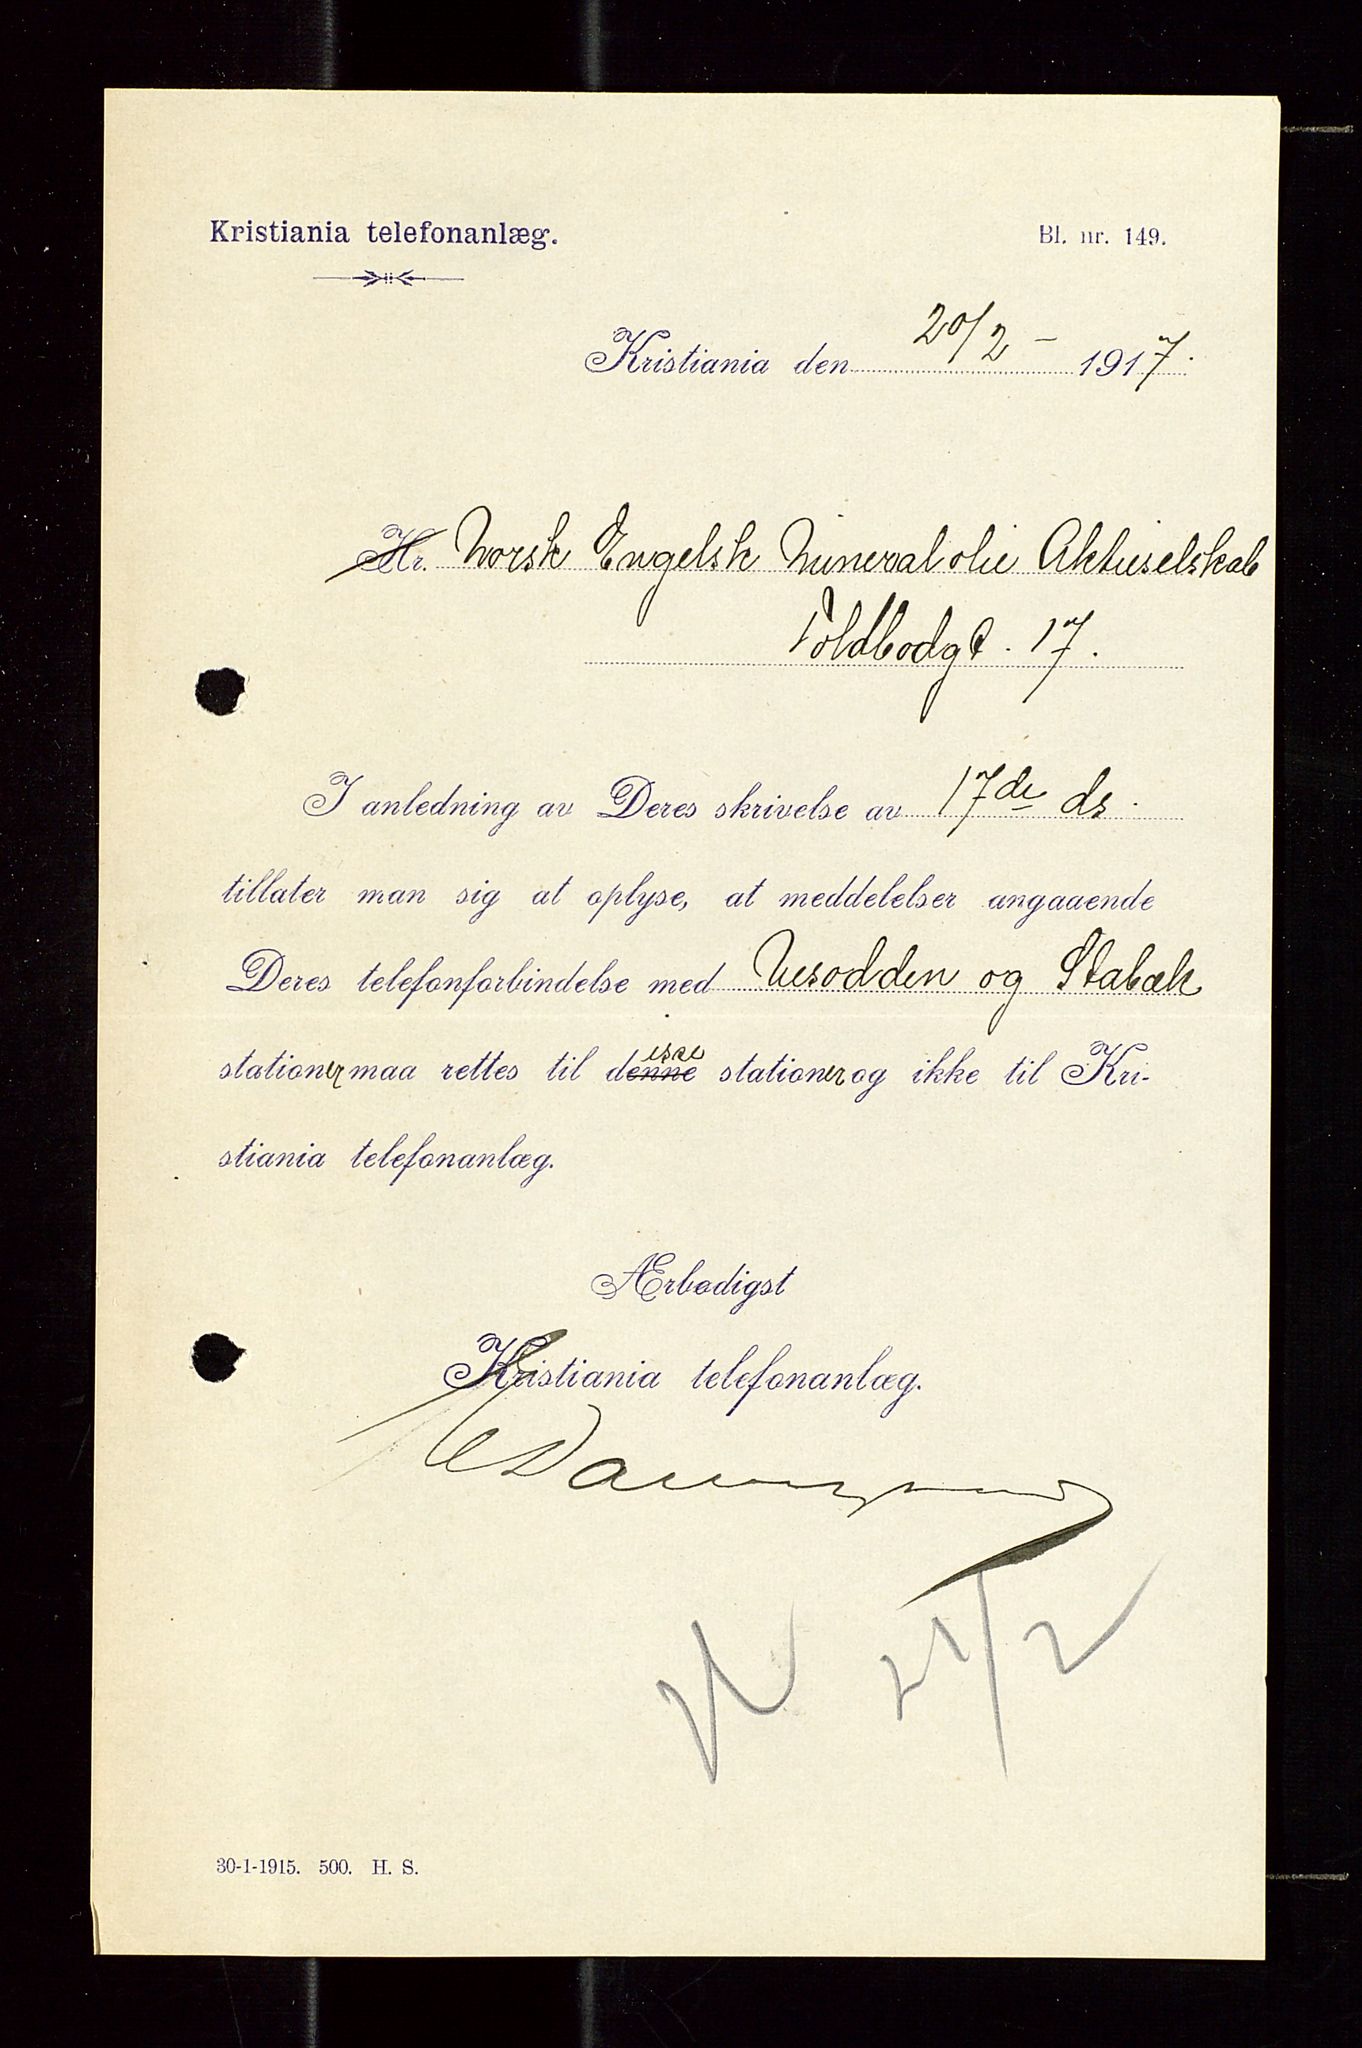 Kristiania telefonanlæg.
Bl. nr. 149.
Kristiania den 20/2 - 1917.
Hr. Norsk Engelsk Mineralolie Aktieselskab
Toldbodgt. 17.
I anledning av Deres skrivelse av 17de ds.
tillater man sig at oplyse, at meddelelser angaaende
Deres telefonforbindelse med Nesodden og Stabæk
stationer maa rettes til denne isse stationer og ikke til Kri-
stiania telefonanlæg.
Ærbødigst
Kristiania telefonanlæg.
21/2
30-1-1915. 500. H. S.